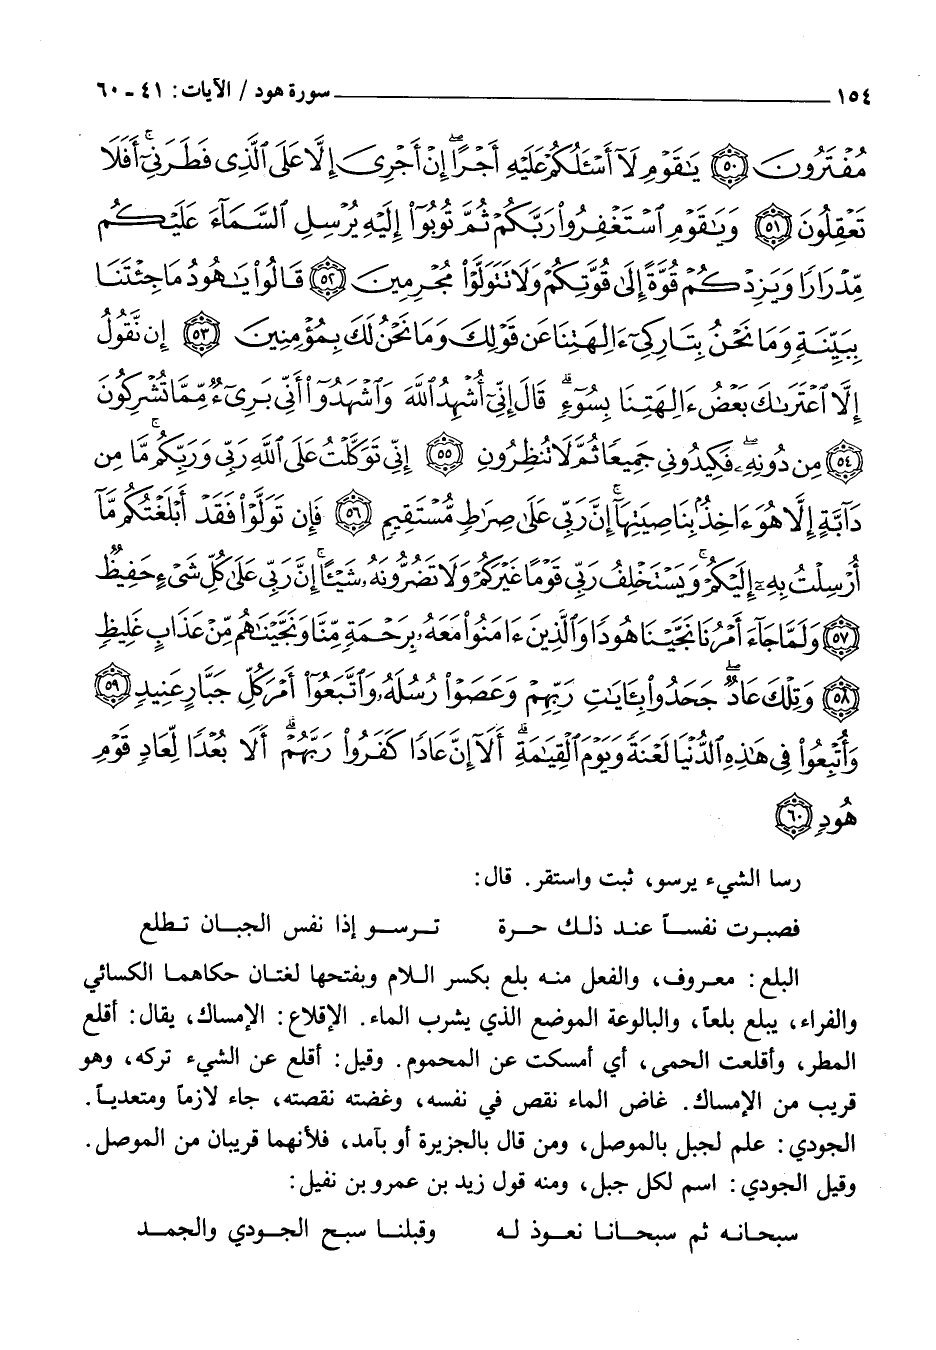 ١٥٤ ــــــــــــــــ سورة هود / الآيات: ٤١ - ٦٠
مُفْتَرُونَ ﴿٥٠﴾ يَٰقَوْمِ لَآ أَسْـَٔلُكُمْ عَلَيْهِ أَجْرًا ۖ إِنْ أَجْرِىَ إِلَّا عَلَى ٱلَّذِى فَطَرَنِىٓ ۚ أَفَلَا
تَعْقِلُونَ ﴿٥١﴾ وَيَٰقَوْمِ ٱسْتَغْفِرُوا۟ رَبَّكُمْ ثُمَّ تُوبُوٓا۟ إِلَيْهِ يُرْسِلِ ٱلسَّمَآءَ عَلَيْكُم
مِّدْرَارًا وَيَزِدْكُمْ قُوَّةً إِلَىٰ قُوَّتِكُمْ وَلَا تَتَوَلَّوْا۟ مُجْرِمِينَ ﴿٥٢﴾ قَالُوا۟ يَٰهُودُ مَا جِئْتَنَا
بِبَيِّنَةٍ وَمَا نَحْنُ بِتَارِكِىٓ ءَالِهَتِنَا عَن قَوْلِكَ وَمَا نَحْنُ لَكَ بِمُؤْمِنِينَ ﴿٥٣﴾ إِن نَّقُولُ
إِلَّا ٱعْتَرَىٰكَ بَعْضُ ءَالِهَتِنَا بِسُوٓءٍ ۗ قَالَ إِنِّىٓ أُشْهِدُ ٱللَّهَ وَٱشْهَدُوٓا۟ أَنِّى بَرِىٓءٌ مِّمَّا تُشْرِكُونَ
﴿٥٤﴾ مِن دُونِهِۦ ۖ فَكِيدُونِى جَمِيعًا ثُمَّ لَا تُنظِرُونِ ﴿٥٥﴾ إِنِّى تَوَكَّلْتُ عَلَى ٱللَّهِ رَبِّى وَرَبِّكُم ۚ مَّا مِن
دَآبَّةٍ إِلَّا هُوَ ءَاخِذٌۢ بِنَاصِيَتِهَآ ۚ إِنَّ رَبِّى عَلَىٰ صِرَٰطٍ مُّسْتَقِيمٍ ﴿٥٦﴾ فَإِن تَوَلَّوْا۟ فَقَدْ أَبْلَغْتُكُم مَّآ
أُرْسِلْتُ بِهِۦٓ إِلَيْكُمْ ۚ وَيَسْتَخْلِفُ رَبِّى قَوْمًا غَيْرَكُمْ وَلَا تَضُرُّونَهُۥ شَيْـًٔا ۚ إِنَّ رَبِّى عَلَىٰ كُلِّ شَىْءٍ حَفِيظٌ
﴿٥٧﴾ وَلَمَّا جَآءَ أَمْرُنَا نَجَّيْنَا هُودًا وَٱلَّذِينَ ءَامَنُوا۟ مَعَهُۥ بِرَحْمَةٍ مِّنَّا وَنَجَّيْنَٰهُم مِّنْ عَذَابٍ غَلِيظٍ
﴿٥٨﴾ وَتِلْكَ عَادٌ ۖ جَحَدُوا۟ بِـَٔايَٰتِ رَبِّهِمْ وَعَصَوْا۟ رُسُلَهُۥ وَٱتَّبَعُوٓا۟ أَمْرَ كُلِّ جَبَّارٍ عَنِيدٍ ﴿٥٩﴾
وَأُتْبِعُوا۟ فِى هَٰذِهِ ٱلدُّنْيَا لَعْنَةً وَيَوْمَ ٱلْقِيَٰمَةِ ۗ أَلَآ إِنَّ عَادًا كَفَرُوا۟ رَبَّهُمْ ۗ أَلَا بُعْدًا لِّعَادٍ قَوْمِ
هُودٍ ﴿٦٠﴾
رسا الشيء يرسو، ثبت واستقر. قال:
فصبرت نفسـاً عند ذلـك حـرة ترسـو إذا نفس الجبـان تـطلع
البلع: معـروف، والفعل منـه بلع بكسر الـلام وبفتحها لغتـان حكاهمـا الكسائي
والفراء، يبلع بلعاً، والبالوعة الموضع الذي يشرب الماء. الإقلاع: الإمساك، يقال: أقلع
المطر، وأقلعت الحمى، أي أمسكت عن المحموم. وقيل: أقلع عن الشيء تركه، وهو
قريب من الإمساك. غاض الماء نقص في نفسه، وغضته نقصته، جاء لازماً ومتعديـاً.
الجودي: علم لجبل بالموصل، ومن قال بالجزيرة أو بآمد، فلأنهما قريبان من الموصل.
وقيل الجودي: اسم لكل جبل، ومنه قول زيد بن عمرو بن نفيل:
سبحـانـه ثم سبحـانـا نعـوذ لـه وقبلنـا سبح الجـودي والجمـد